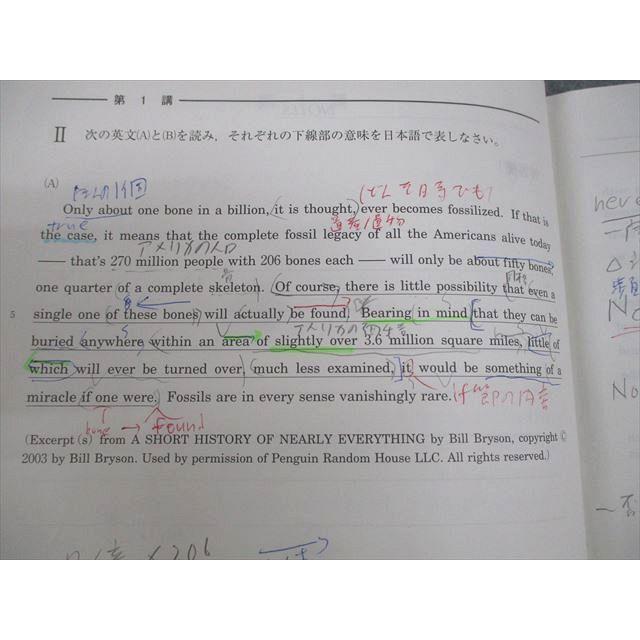 第 1 講
II 次の英文(A)と(B)を読み，それぞれの下線部の意味を日本語で表しなさい。
(A)
Only about one bone in a billion, it is thought, ever becomes fossilized. If that is
true
the case, it means that the complete fossil legacy of all the Americans alive today
アメリカの人口
— that's 270 million people with 206 bones each — will only be about fifty bones,
骨
one quarter of a complete skeleton. Of course, there is little possibility that even a
同格
5 single one of these bones will actually be found. Bearing in mind that they can be
buried anywhere within an area of slightly over 3.6 million square miles, little of
which will ever be turned over, much less examined, it would be something of a
miracle if one were. Fossils are in every sense vanishingly rare.
if節の内容
bone → found
(Excerpt(s) from A SHORT HISTORY OF NEARLY EVERYTHING by Bill Bryson, copyright ©
2003 by Bill Bryson. Used by permission of Penguin Random House LLC. All rights reserved.)
neve
No
No